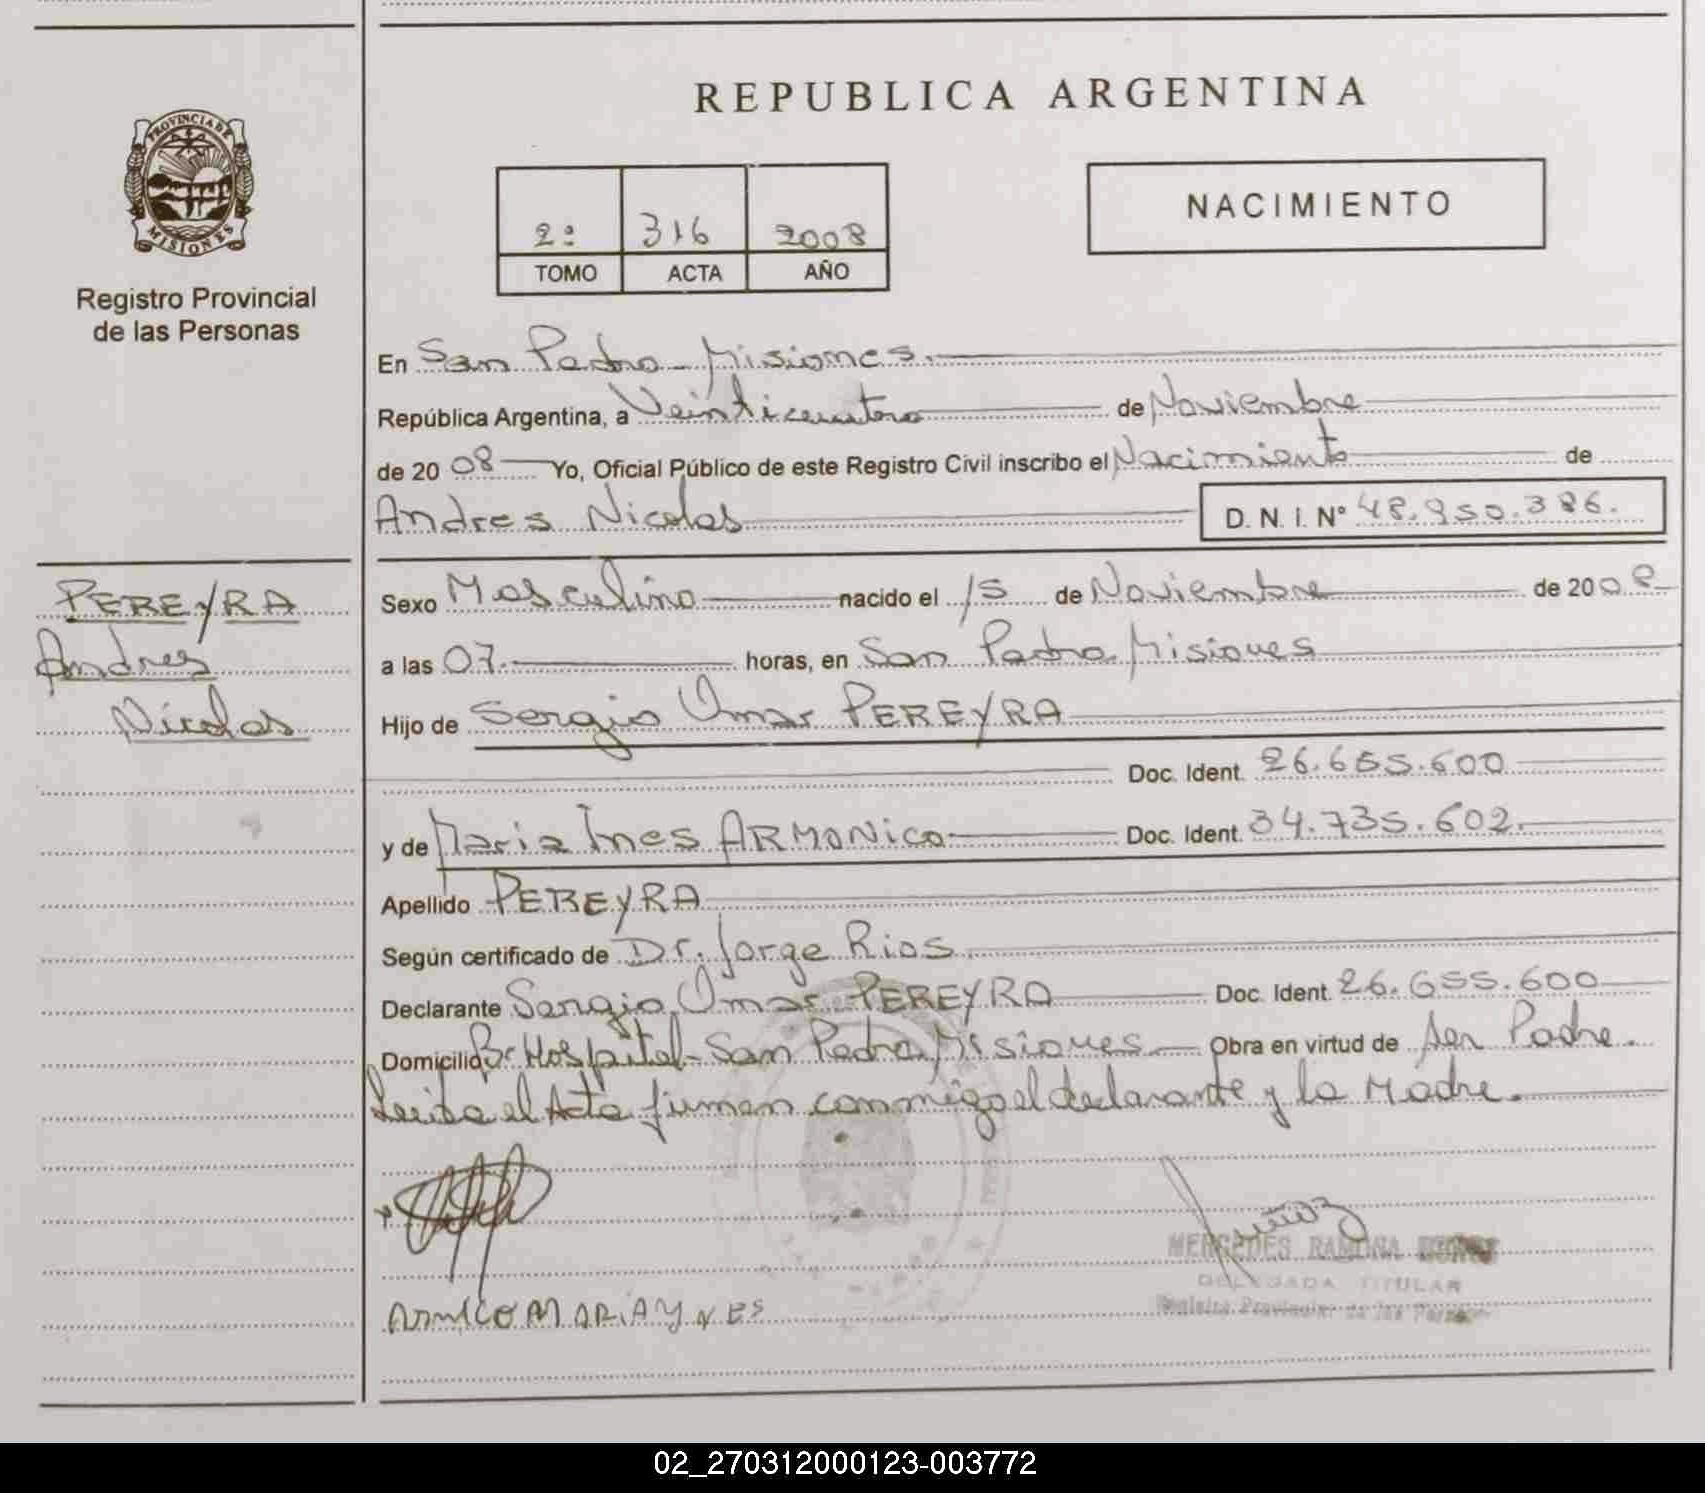 REPUBLICA ARGENTINA
PROVINCIA DE
MISIONES
Registro Provincial
de las Personas
2º 316 2008
TOMO ACTA AÑO
NACIMIENTO
En San Pedro - Misiones.
República Argentina, a Veinticuatro de Noviembre
de 2008 Yo, Oficial Público de este Registro Civil inscribo el Nacimiento de
Andres Nicolas D. N. I. Nº 48.950.386.
PEREYRA
Andres
Nicolas
Sexo Masculino nacido el 15 de Noviembre de 2008
a las 07. horas, en San Pedro Misiones
Hijo de Sergio Omar PEREYRA
Doc. Ident. 26.655.600
y de Maria Ines ARMONICO Doc. Ident. 34.735.602.
Apellido PEREYRA
Según certificado de Dr. Jorge Rios.
Declarante Sergio Omar PEREYRA Doc. Ident. 26.655.600
Domicilio Bº Hospital - San Pedro Misiones Obra en virtud de ser Padre.
Leida el Acta firman conmigo el declarante y la Madre.
MERCEDES RAMONA
DELEGADA TITULAR
Registro Provincial de las
MARiA YNES
02_270312000123-003772